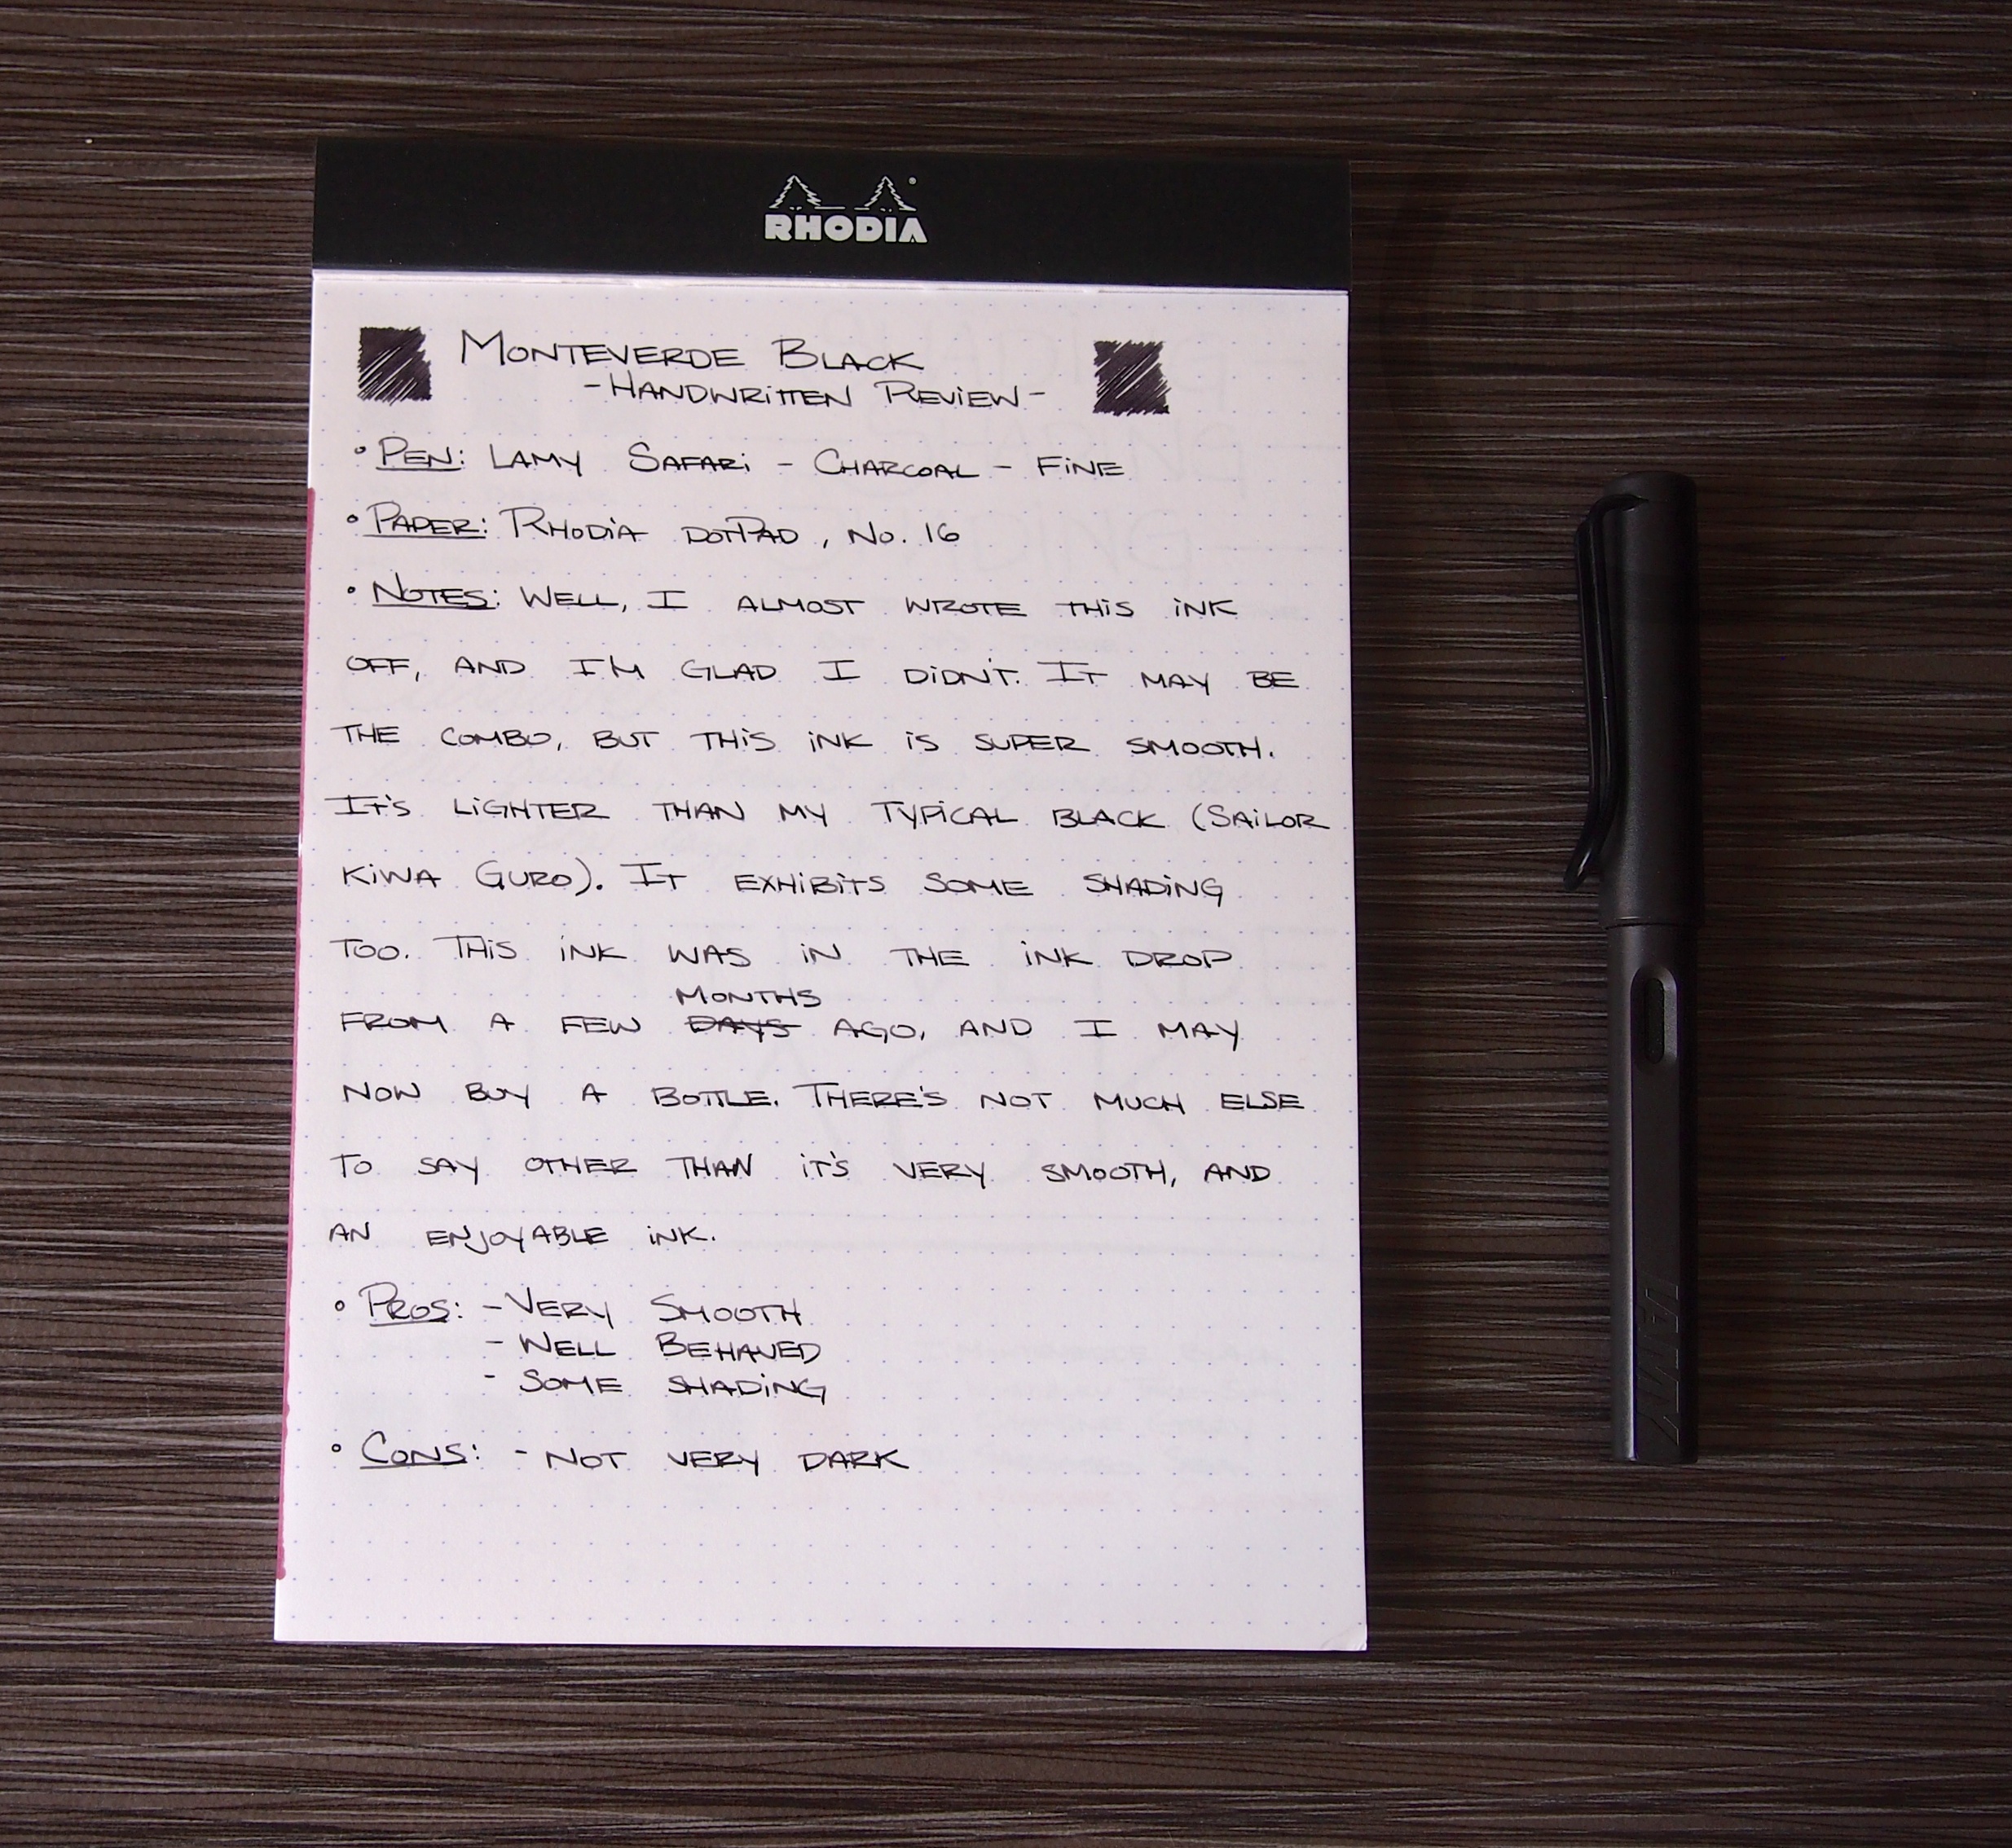 RHODIA
MONTEVERDE BLACK
-HANDWRiTTEN REViEW-
• PEN: LAMY SAFARi - CHARCOAL - FiNE
• PAPER: RHODiA DOTPAD, No. 16
• NOTES: WELL, I ALMOST WROTE THiS iNK
OFF, AND I'M GLAD I DiDN'T. IT MAY BE
THE COMBO, BUT THiS iNK iS SUPER SMOOTH.
IT'S LiGHTER THAN MY TYPiCAL BLACK (SAiLOR
KiWA GURO). IT EXHiBiTS SOME SHADiNG
TOO. THiS iNK WAS iN THE iNK DROP
MONTHS
FROM A FEW DAYS AGO, AND I MAY
NOW BUY A BOTTLE. THERE'S NOT MUCH ELSE
TO SAY OTHER THAN iT'S VERY SMOOTH, AND
AN ENJOYABLE iNK.
• PROS: - VERY SMOOTH
- WELL BEHAVED
- SOME SHADiNG
• CONS: - NOT VERY DARK
LAMY